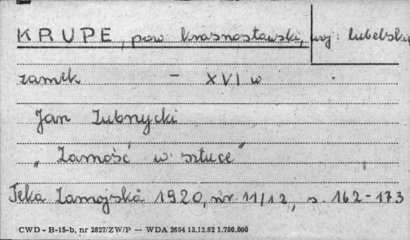 KRUPE, pow krasnostawski, woj: lubelski
zamek – XVI w.
Jan Zubnycki
„Zamość w sztuce"
Teka Zamojska 1920, nr 11/12, s. 162-173
CWD - B-15-b, nr 2827/ZW/P — WDA 2694 13.12.62 1.700.000